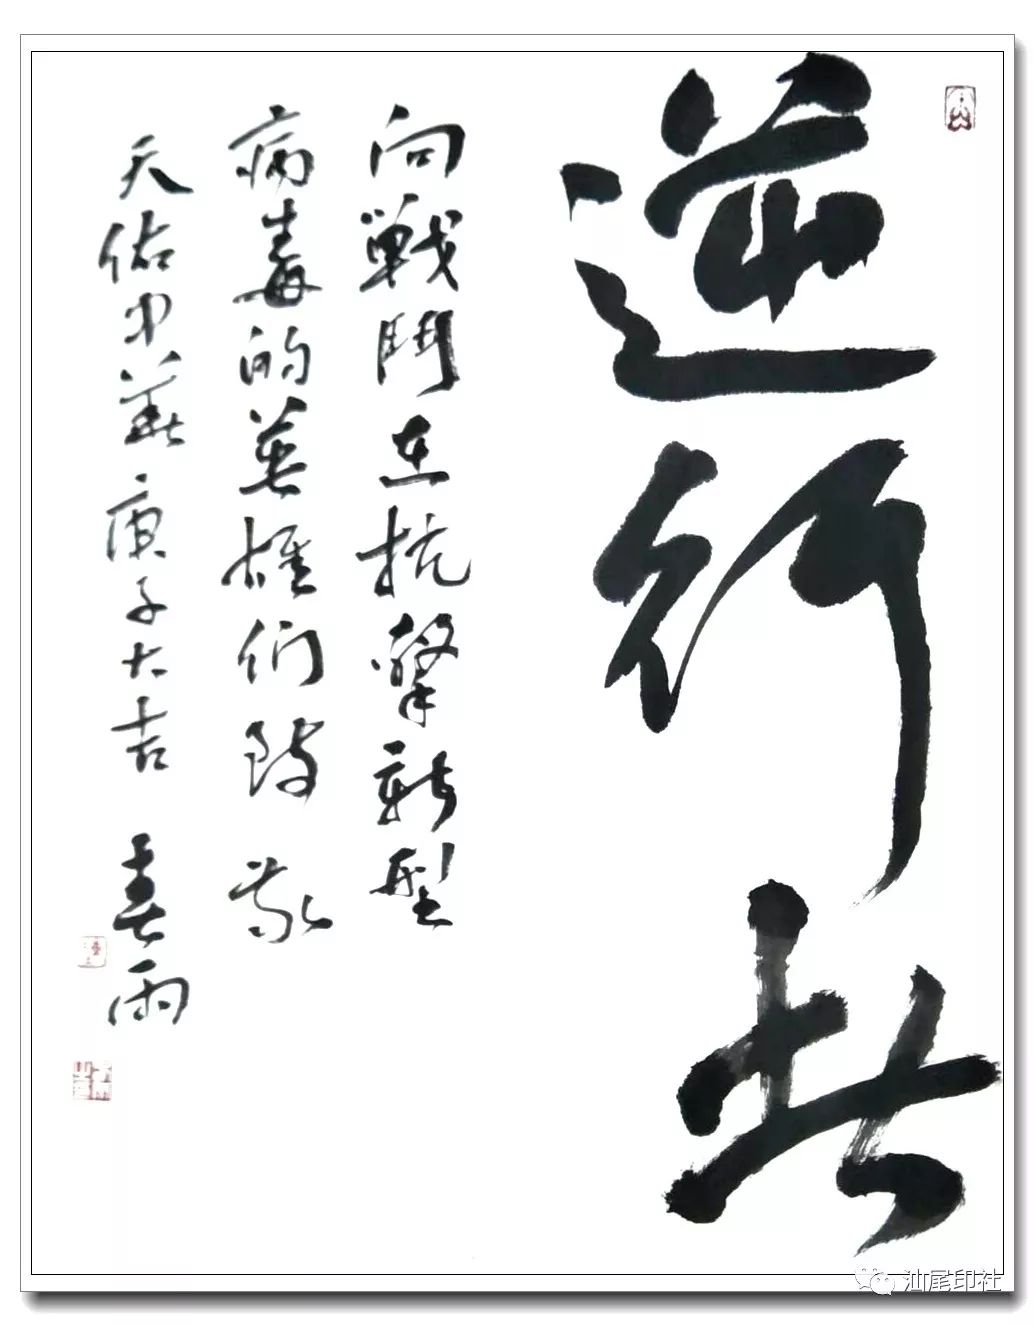 逆行者
向戰鬥在抗擊新型
病毒的英雄們致敬
天佑中華庚子大吉 春雨
汕尾印社